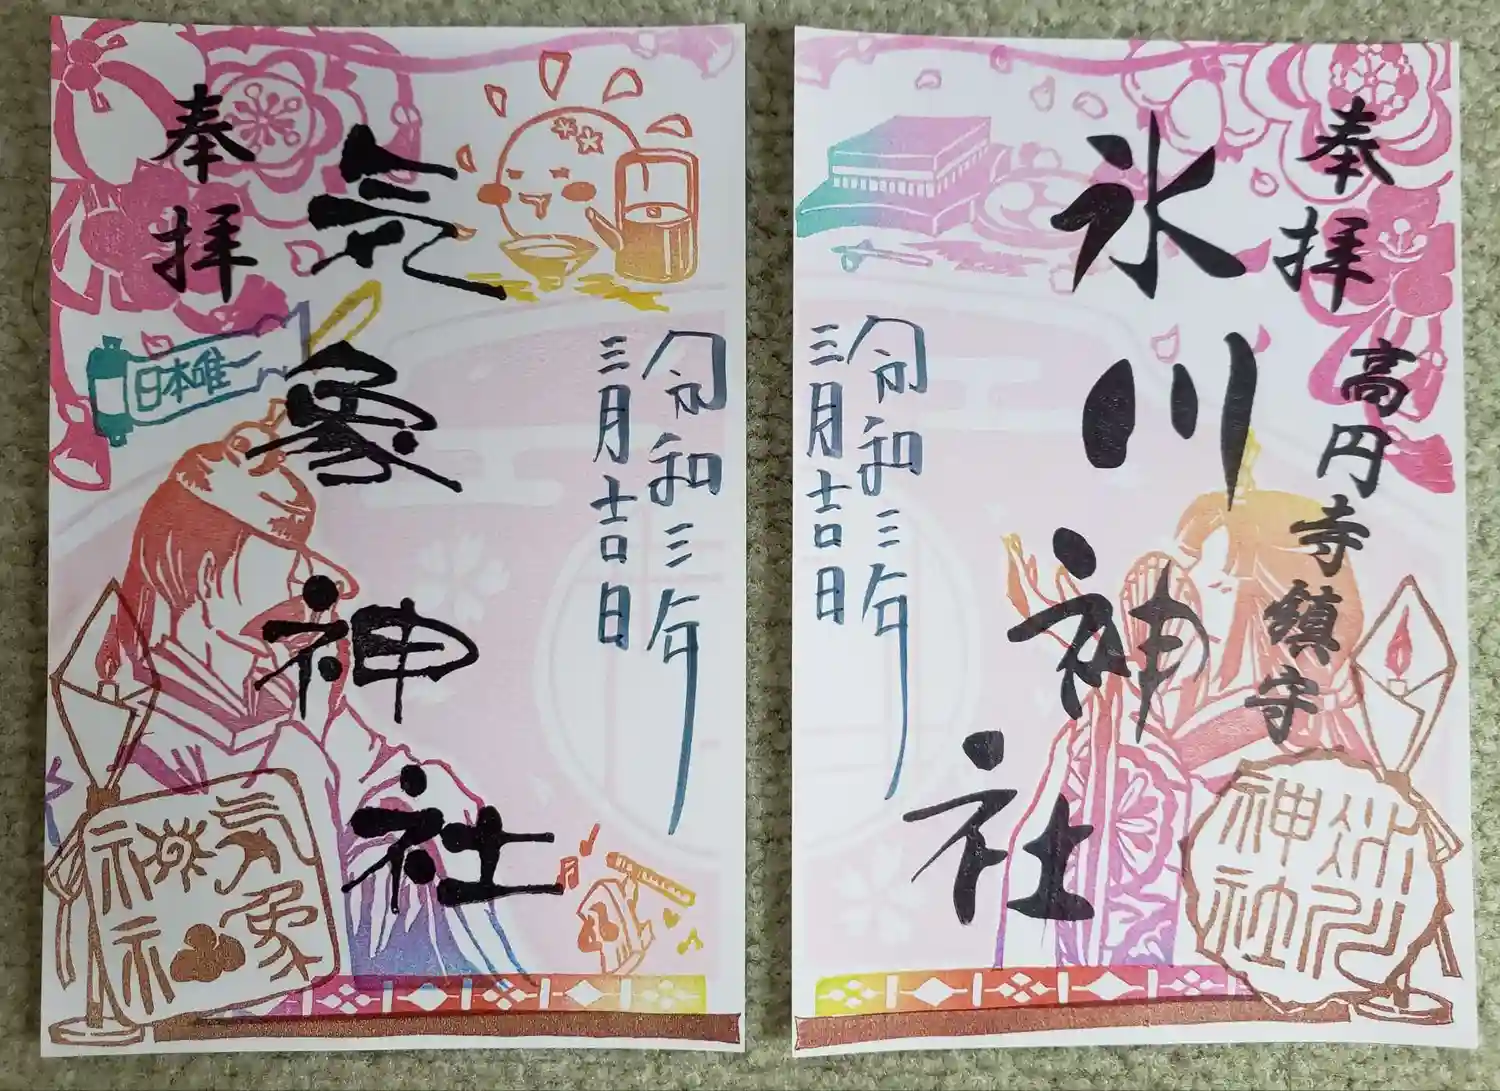 奉拝
高円寺鎮守
氷川神社
令和三年
三月吉日
氷川
神社
奉拝
気象神社
日本唯一
令和三年
三月吉日
気象
神社